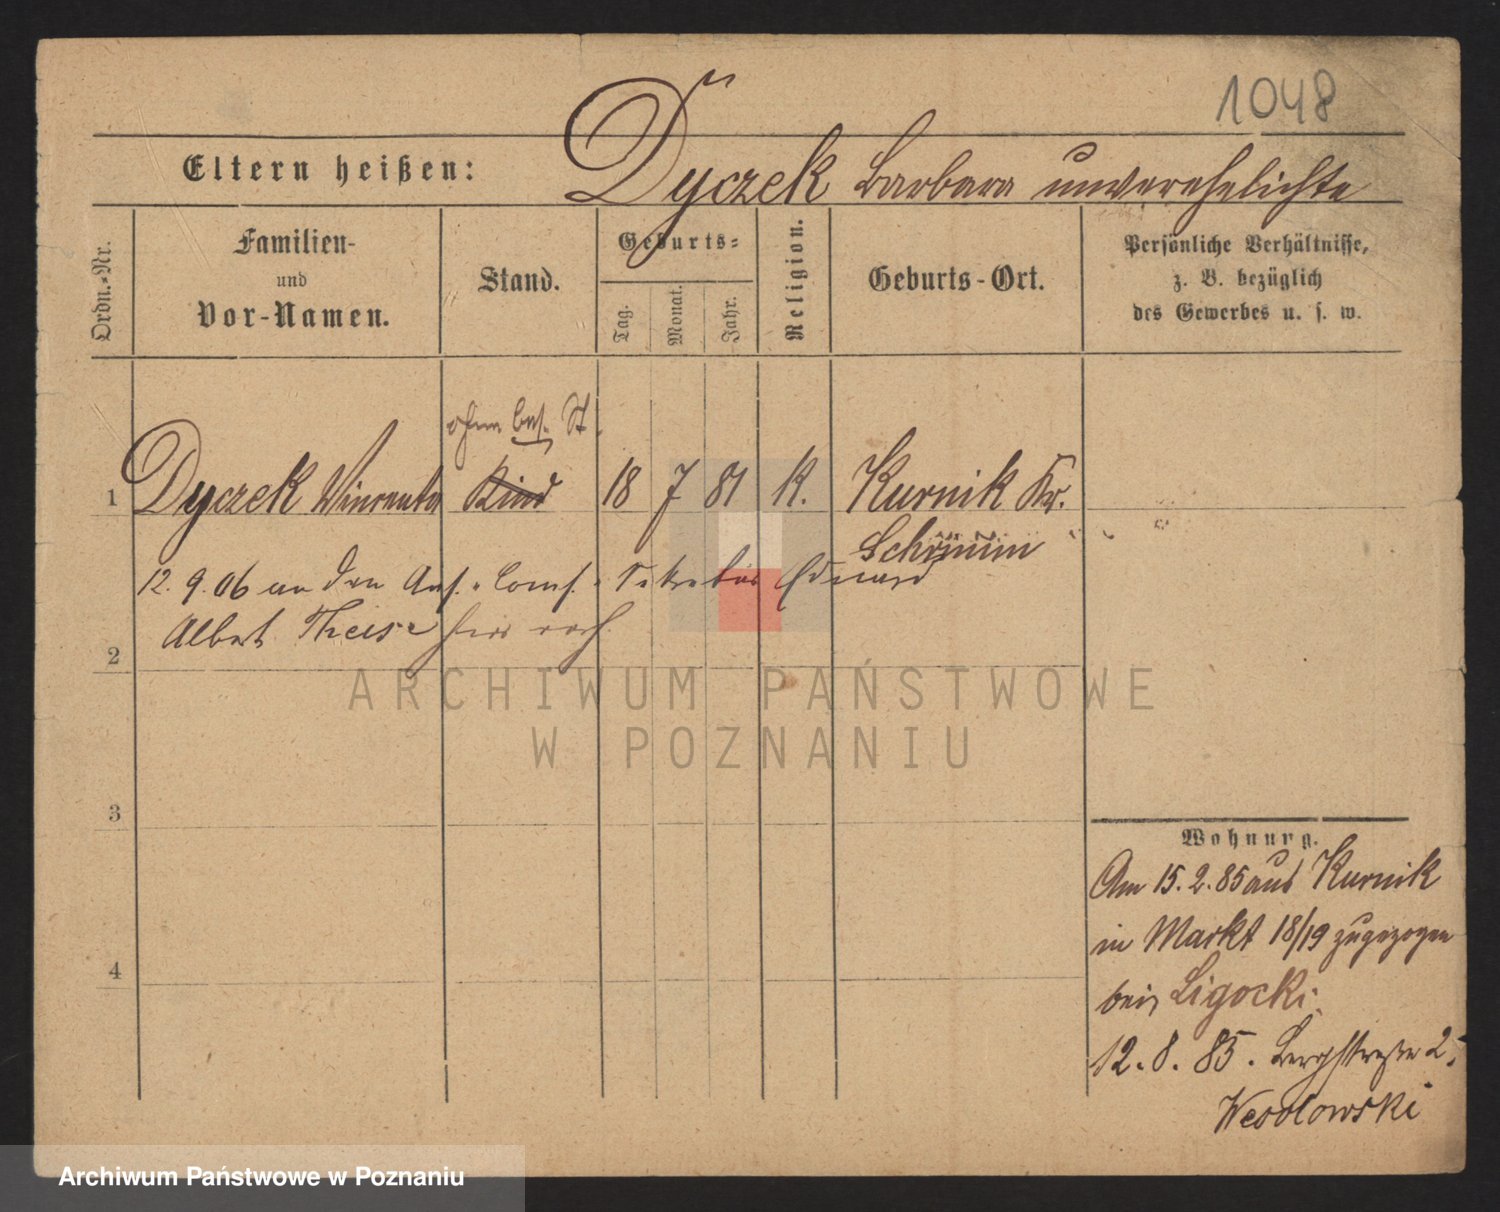 1048
Eltern heißen: Dyczek Barbara unverehelichte
Ordn.-Nr.
Familien-
und
Vor-Namen.
Stand.
Geburts=
Tag.
Monat.
Jahr.
Religion.
Geburts-Ort.
Persönliche Verhältnisse,
z. B. bezüglich
des Gewerbes u. s. w.
ohne bes. St.
1 Dyczek Kind 18 7 81 K. Kurnik Kr.
Schrimm
12. 9. 06 an den Ans. Coms. Sekretär Eduard
Albert Theise
2
3
4
ARCHIWUM PAŃSTWOWE
W POZNANIU
Wohnung.
Am 15. 2. 85 aus Kurnik
in Markt 18/19 zugezogen
bei Ligocki.
12. 8. 85. Bergstraße 2,
Wesolowski
Archiwum Państwowe w Poznaniu